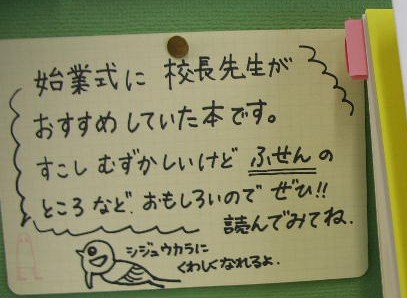 始業式に 校長先生が
おすすめしていた本です。
すこし むずかしいけど ふせんの
ところ など、おもしろいので ぜひ!!
読んでみてね.
シジュウカラに
くわしくなれるよ.